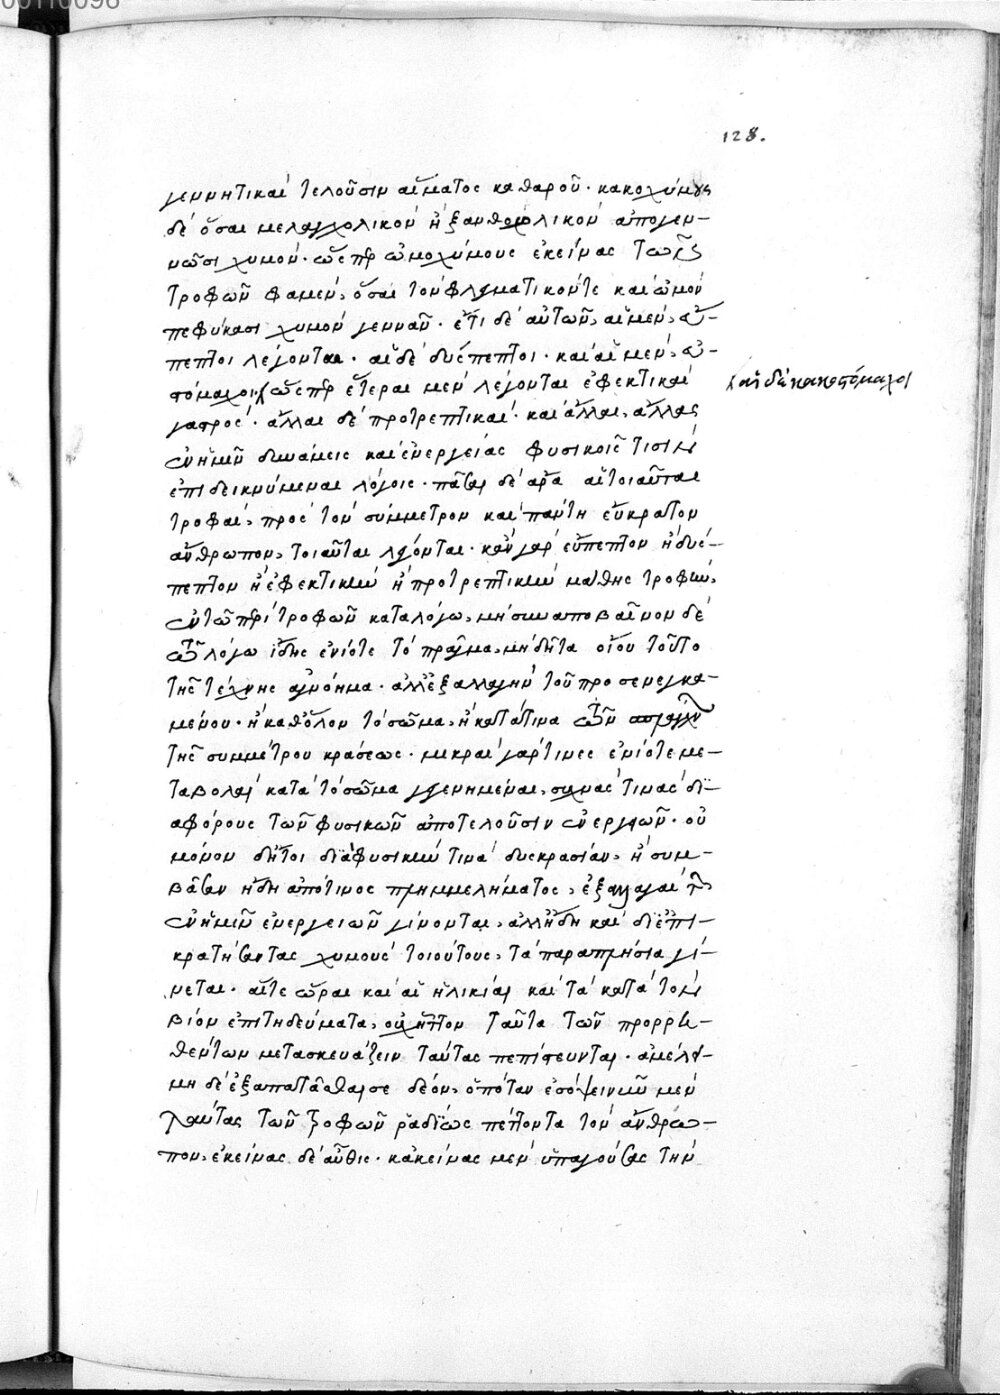 128.
γεννητικαὶ τελοῦσιν αἵματος καθαροῦ· κακοχύμους
δὲ ὅσαι μελαγχολικὸν ἢ ξανθοχολικὸν ἀπογεν-
νῶσι χυμόν· ὥσπερ ὠμοχύμους ἐκείνας τῶν
τροφῶν φαμὲν, ὅσαι τὸν φλεγματικόν τε καὶ ὠμὸν
πεφύκασι χυμὸν γεννᾶν· ἔτι δὲ αὐτῶν, αἱ μὲν, εὔ-
πεπτοι λέγονται· αἱ δὲ δύσπεπτοι· καὶ αἱ μὲν, εὐ-
στόμαχοι, ὥσπερ ἕτεραι μὲν λέγονται ἐφεκτικαὶ
καὶ αἱ δὲ κακοστόμαχοι
γαστρός· ἄλλαι δὲ προτρεπτικαί· καὶ ἄλλαι, ἄλλας
ἐν ἡμῖν δυνάμεις καὶ ἐνεργείας φυσικοῖς τισὶν
ἐπιδεικνύμεναι λόγοις· πᾶσαι δὲ ἆρα αἱ τοιαῦται
τροφαὶ, πρὸς τὸν σύμμετρον καὶ πάντη εὔκρατον
ἄνθρωπον, τοιαῦται λέγονται· κἂν γὰρ εὔπεπτον ἢ δύσ-
πεπτον ἢ ἐφεκτικὴν ἢ προτρεπτικὴν μάθῃς τροφὴν,
ἐν τῷ περὶ τροφῶν καταλόγω, μὴ συναποβαῖνον δὲ
τῶ λόγω ἴδης ἐνίοτε τὸ πρᾶγμα, μὴ δῆτα οἴου τοῦτο
τῆς τέχνης ἀγνόημα· ἀλλ' ἐξαλλαγὴν τοῦ προσενεγκα-
μένου· ἢ καθόλου τὸ σῶμα, ἢ κατά τινα τῶν
τῆς συμμέτρου κράσεως· μικραὶ γάρ τινες ἐνίοτε με-
ταβολαὶ κατὰ τὸ σῶμα γεγενημέναι, συχνάς τινας δι-
αφόρους τῶν φυσικῶν ἀποτελοῦσιν ἐνεργειῶν· οὐ
μόνον δήτοι διὰ φυσικήν τινα δυσκρασίαν, ἢ συμ-
βᾶσαν ἤδη ἀπό τινος πλημμελήματος, ἐξαλλαγαὶ τῶν
ἐν ἡμῖν ἐνεργειῶν γίνονται, ἀλλ' ἤδη καὶ δι' ἐπι-
κρατήσαντας χυμοὺς τοιούτους, τὰ παραπλήσια γί-
νεται· αἵ τε ὧραι καὶ αἱ ἡλικίαι καὶ τὰ κατὰ τὸν
βίον ἐπιτηδεύματα, οὐχ ἧττον ταῦτα τῶν προρρη-
θέντων μετασκευάζειν ταύτας πεπίστευνται· ἀμέλει
μηδὲ ἐξαπατᾶσθαί σε δέον, ὁπόταν ἐσόψει νῦν μὲν
ταύτας τῶν τροφῶν ῥαδίως πέττοντα τὸν ἄνθρω-
πον, ἐκείνας δὲ αὖθις· κἀκείνας μὲν ὑπαγούσας τὴν